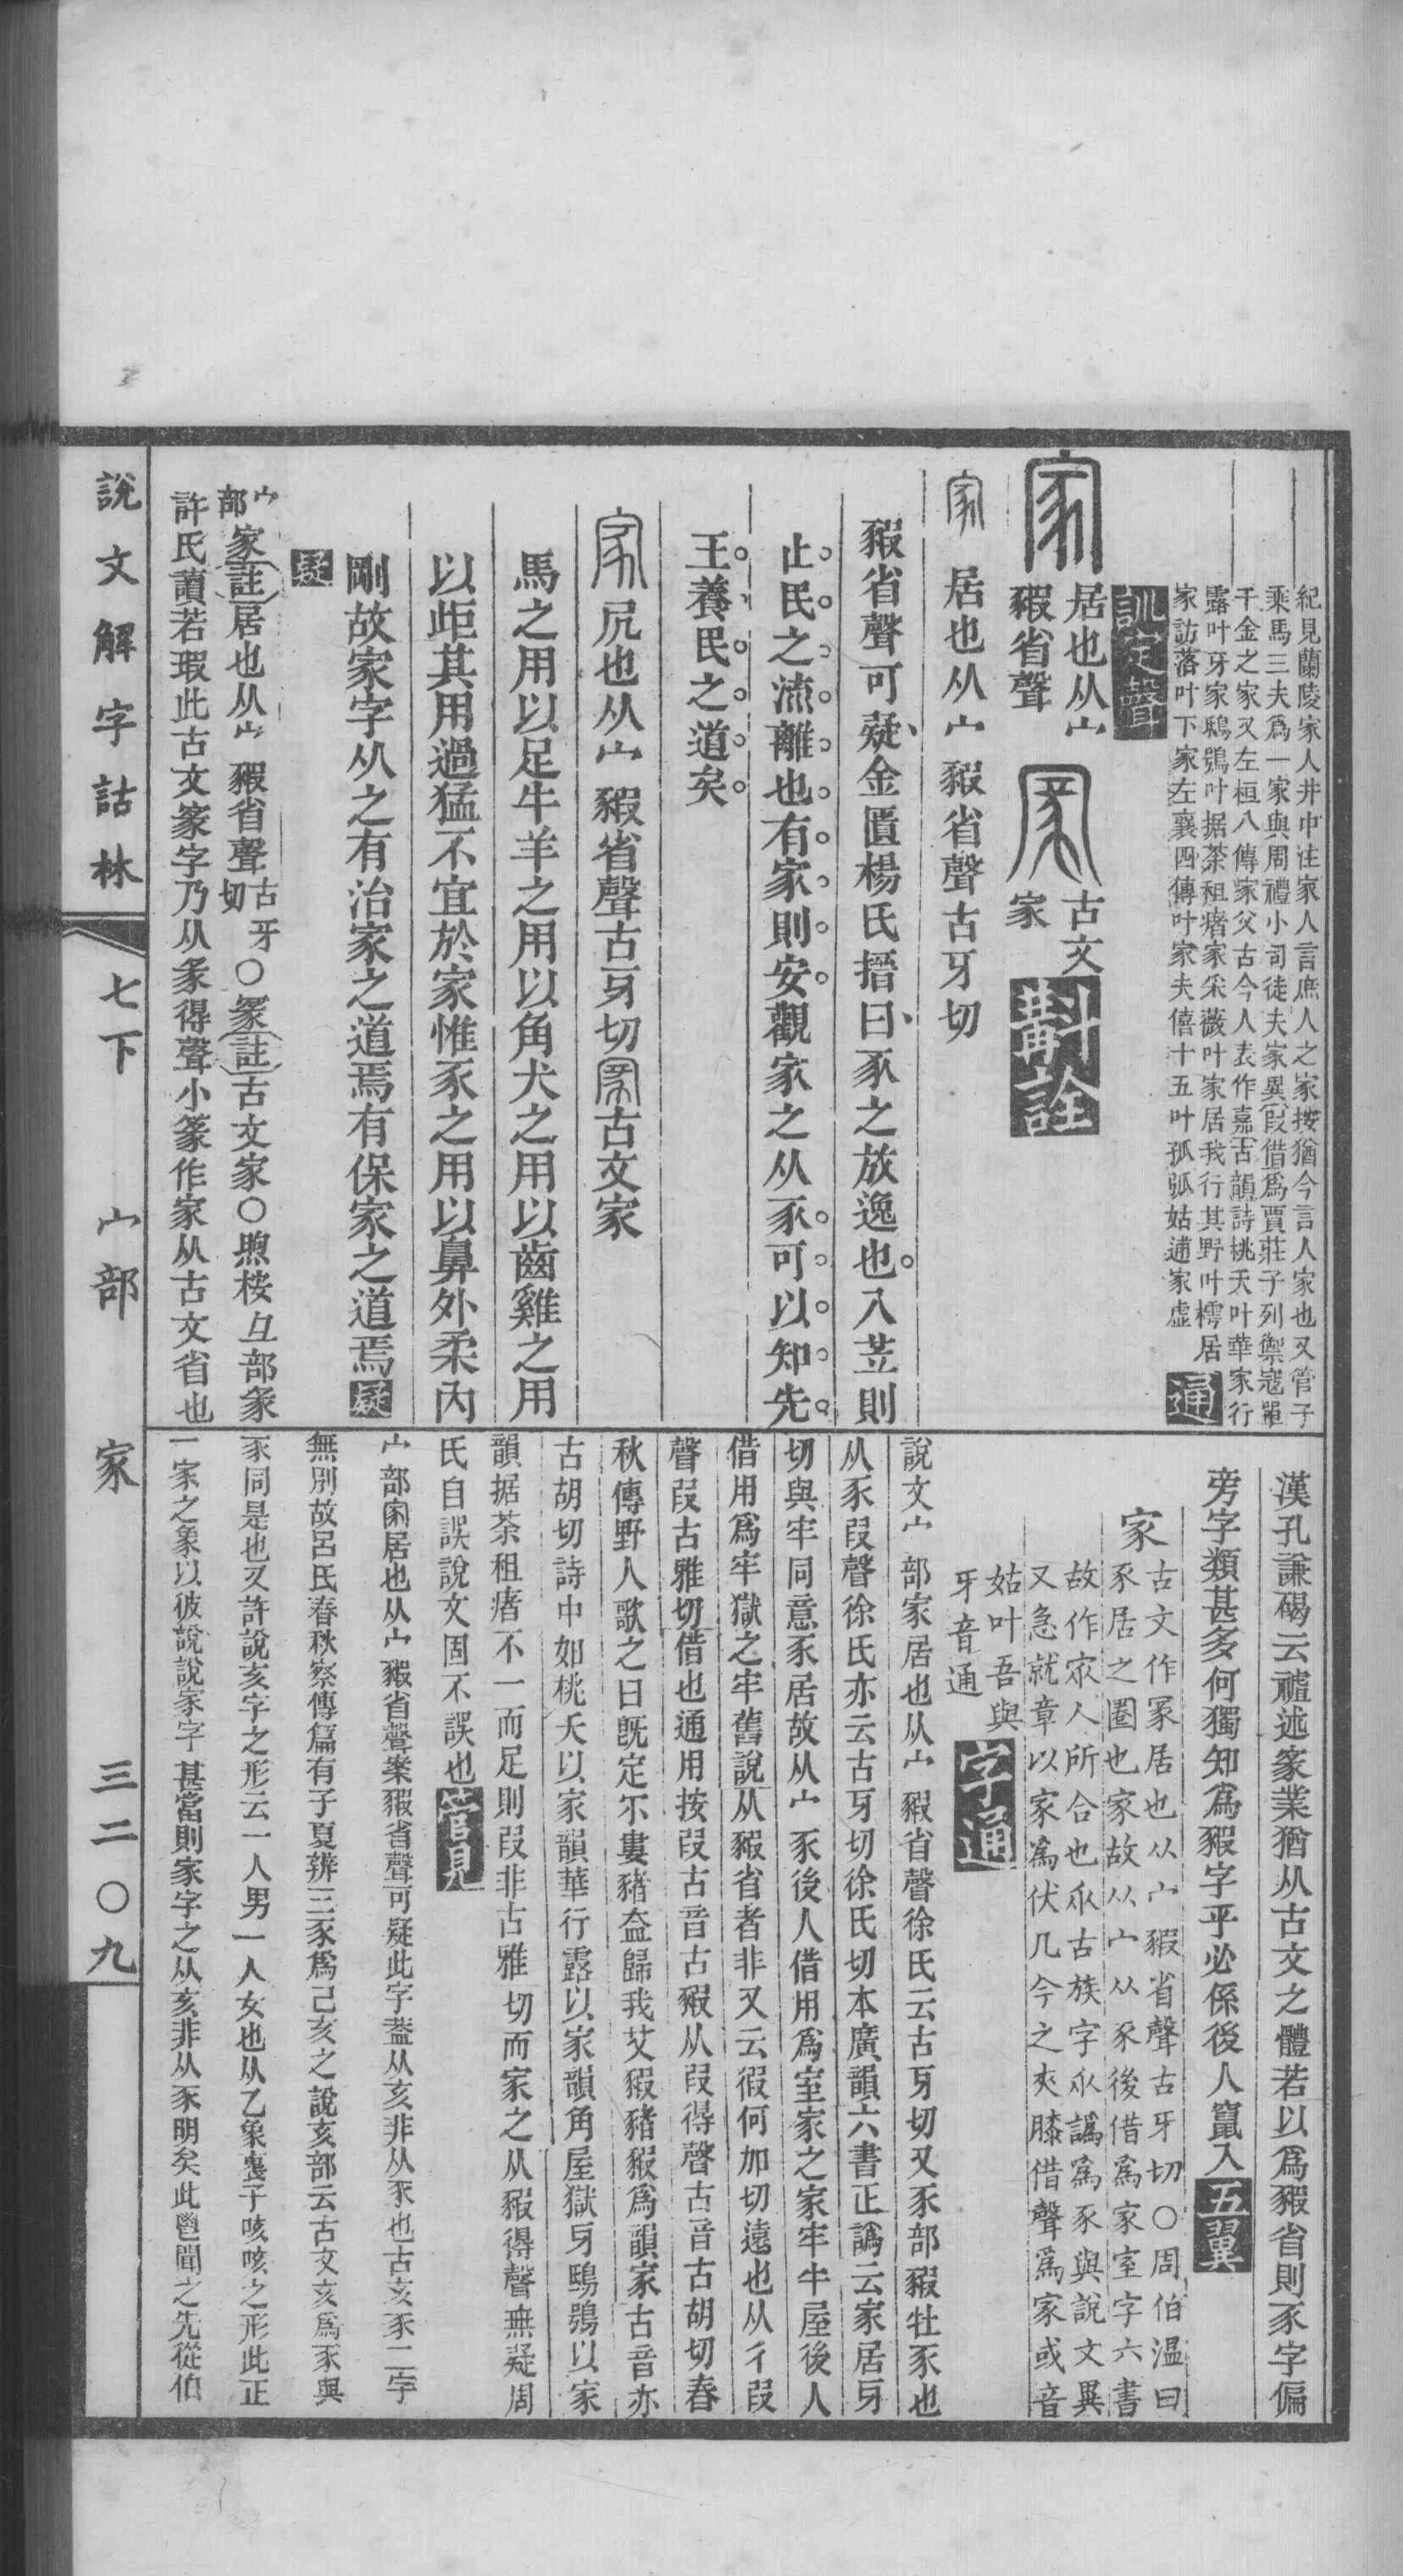 紀見蘭陵家人井中注家人言庶人之家按猶今言人家也又管子
乘馬三夫爲一家與周禮小司徒夫家異叚借爲賈莊子列禦寇單
千金之家又左桓八傳家父古今人表作嘉古韻詩桃夭叶華家行
露叶牙家鴟鴞叶据荼租瘏家采薇叶家居我行其野叶樗居
家訪落叶下家左襄四傳叶家夫僖十五叶孤弧姑逋家虛
通訓定聲
家
居也从宀
豭省聲
古文
家
斠詮
家 居也从宀豭省聲古牙切
豭省聲可疑金匱楊氏㬜曰豕之放逸也入苙則
止民之流離也有家則安觀家之从豕可以知先
王養民之道矣
家 凥也从宀豭省聲古牙切 古文家
馬之用以足牛羊之用以角犬之用以齒雞之用
以距其用過猛不宜於家惟豕之用以鼻外柔內
剛故家字从之有治家之道焉有保家之道焉
疑疑
宀部 家註居也从宀豭省聲古牙切○註古文家○煦桉彑部彖
許氏讀若瑕此古文家字乃从彖得聲小篆作家从古文省也
漢孔謙碣云禮述家業猶从古文之體若以爲豭省則豕字偏
旁字類甚多何獨知爲豭字乎必係後人竄入
五翼
家
古文作冡居也从宀豭省聲古牙切○周伯温曰
豕居之圈也家故从宀从豕後借爲家室字六書
故作㝩人所合也㐺古族字㐺譌爲豕與說文異
又急就章以家爲伏几今之夾膝借聲爲家或音
姑叶吾與
牙音通
字通
說文宀部家居也从宀豭省聲徐氏云古牙切又豕部豭牡豕也
从豕叚聲徐氏亦云古牙切徐氏切本廣韻六書正譌云家居牙
切與牢同意豕居故从宀豕後人借用爲室家之家牢牛屋後人
借用爲牢獄之牢舊說从豭省者非又云徦何加切遠也从彳叚
聲叚古雅切借也通用按叚古音古豭从叚得聲古音古胡切春
秋傳野人歌之曰既定尒婁豬盍歸我艾豭豬豭爲韻家古音亦
古胡切詩中如桃夭以家韻華行露以家韻角屋獄牙鴟鴞以家
韻据荼租瘏不一而足則叚非古雅切而家之从豭得聲無疑周
氏自誤說文固不誤也
管見
宀部家居也从宀豭省聲案豭省聲可疑此字葢从亥非从豕也古亥豕二字
無別故呂氏春秋察傳篇有子夏辨三豕爲己亥之說亥部云古文亥爲豕與
豕同是也又許說亥字之形云一人男一人女也从乙象裹子咳咳之形此正
一家之象以彼說說家字甚當則家字之从亥非从豕明矣此鬯聞之先從伯
說文解字詁林 七下 宀部 家 三二〇九